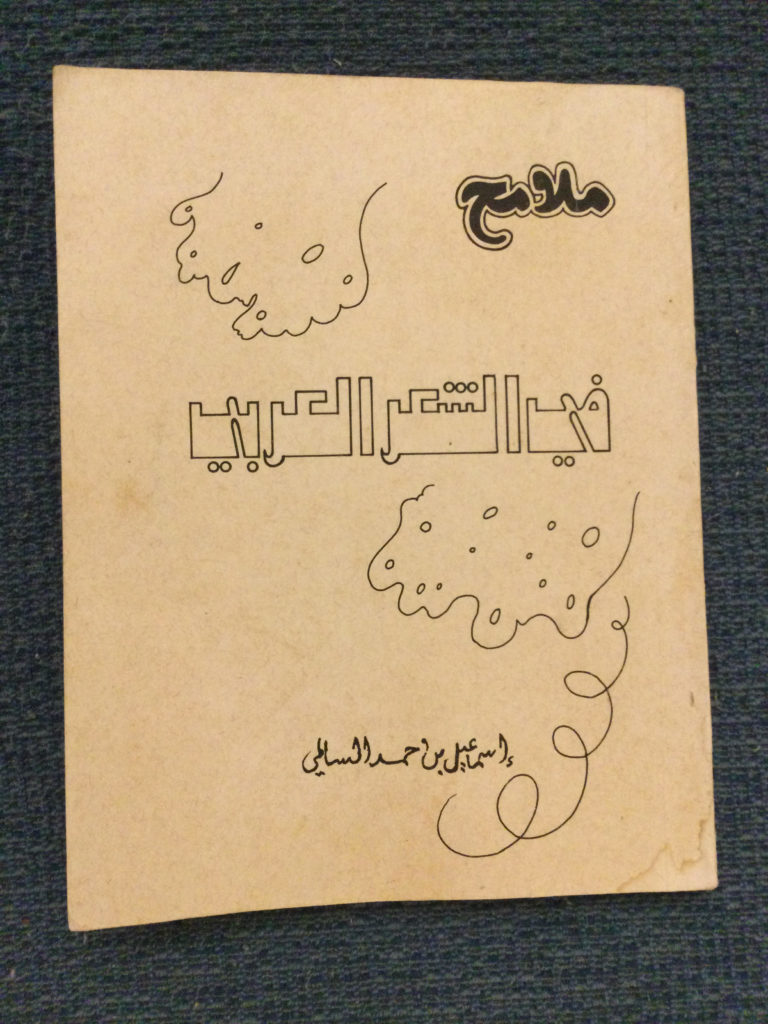 ملامح
في الشعر العربي
إسماعيل بن احمد السالمي